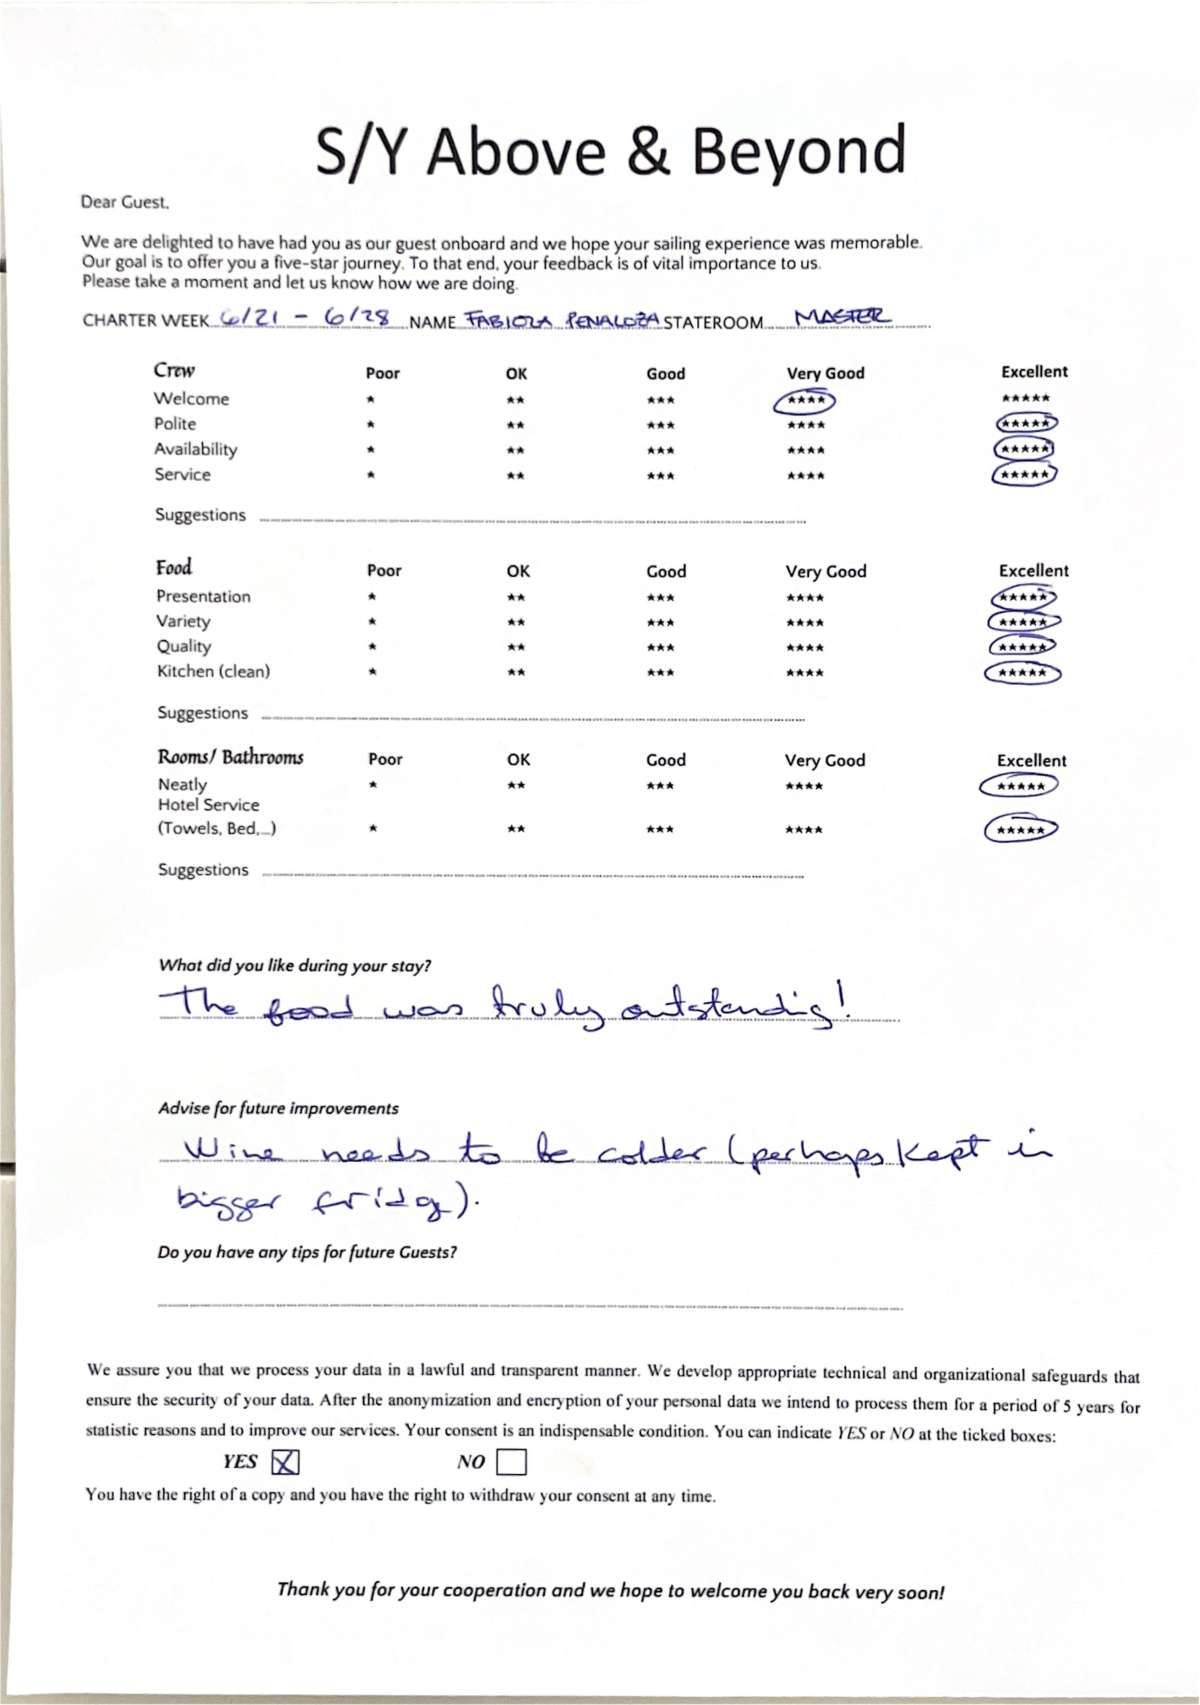 S/Y Above & Beyond
Dear Guest,
We are delighted to have had you as our guest onboard and we hope your sailing experience was memorable.
Our goal is to offer you a five-star journey. To that end, your feedback is of vital importance to us.
Please take a moment and let us know how we are doing.
CHARTER WEEK 6/21 - 6/28 NAME FABIOLA PENALOZA STATEROOM MASTER
Crew Poor OK Good Very Good Excellent
Welcome * ** *** **** *****
Polite * ** *** **** *****
Availability * ** *** **** *****
Service * ** *** **** *****
Suggestions
Food Poor OK Good Very Good Excellent
Presentation * ** *** **** *****
Variety * ** *** **** *****
Quality * ** *** **** *****
Kitchen (clean) * ** *** **** *****
Suggestions
Rooms/ Bathrooms Poor OK Good Very Good Excellent
Neatly * ** *** **** *****
Hotel Service
(Towels, Bed,...) * ** *** **** *****
Suggestions
What did you like during your stay?
The food was truly outstandig!
Advise for future improvements
Wine needs to be colder (perhaps kept in
bigger fridg).
Do you have any tips for future Guests?
We assure you that we process your data in a lawful and transparent manner. We develop appropriate technical and organizational safeguards that
ensure the security of your data. After the anonymization and encryption of your personal data we intend to process them for a period of 5 years for
statistic reasons and to improve our services. Your consent is an indispensable condition. You can indicate YES or NO at the ticked boxes:
YES X NO
You have the right of a copy and you have the right to withdraw your consent at any time.
Thank you for your cooperation and we hope to welcome you back very soon!